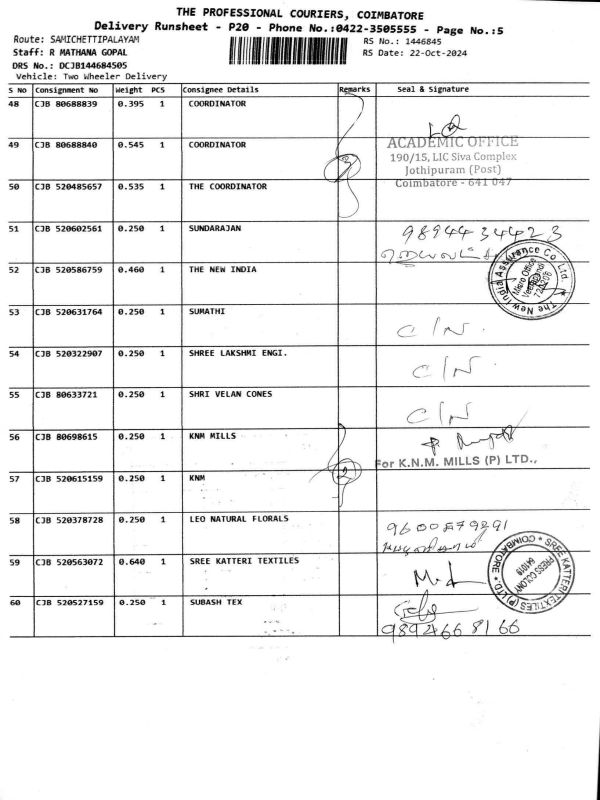 THE PROFESSIONAL COURIERS, COIMBATORE
Delivery Runsheet - P20 - Phone No.:0422-3505555 - Page No.:5
Route: SAMICHETTIPALAYAM RS No.: 1446845
Staff: R MATHANA GOPAL RS Date: 22-Oct-2024
DRS No.: DCJB144684505
Vehicle: Two Wheeler Delivery
S No Consignment No Weight PCS Consignee Details Remarks Seal & Signature
48 CJB 80688839 0.395 1 COORDINATOR
49 CJB 80688840 0.545 1 COORDINATOR
ACADEMIC OFFICE
190/15, LIC Siva Complex
Jothipuram (Post)
Coimbatore - 641 047
50 CJB 520485657 0.535 1 THE COORDINATOR
51 CJB 520602561 0.250 1 SUNDARAJAN 9894434423
52 CJB 520586759 0.460 1 THE NEW INDIA
The New India Assurance Co. Ltd.
Micro Office
53 CJB 520631764 0.250 1 SUMATHI C/N.
54 CJB 520322907 0.250 1 SHREE LAKSHMI ENGI. C/N.
55 CJB 80633721 0.250 1 SHRI VELAN CONES C/N
56 CJB 80698615 0.250 1 KNM MILLS
For K.N.M. MILLS (P) LTD.,
57 CJB 520615159 0.250 1 KNM 2
58 CJB 520378728 0.250 1 LEO NATURAL FLORALS
59 CJB 520563072 0.640 1 SREE KATTERI TEXTILES
SREE KATTERI TEXTILES (P) LTD. * COIMBATORE *
PRESS COLONY
641019
60 CJB 520527159 0.250 1 SUBASH TEX
9894668166